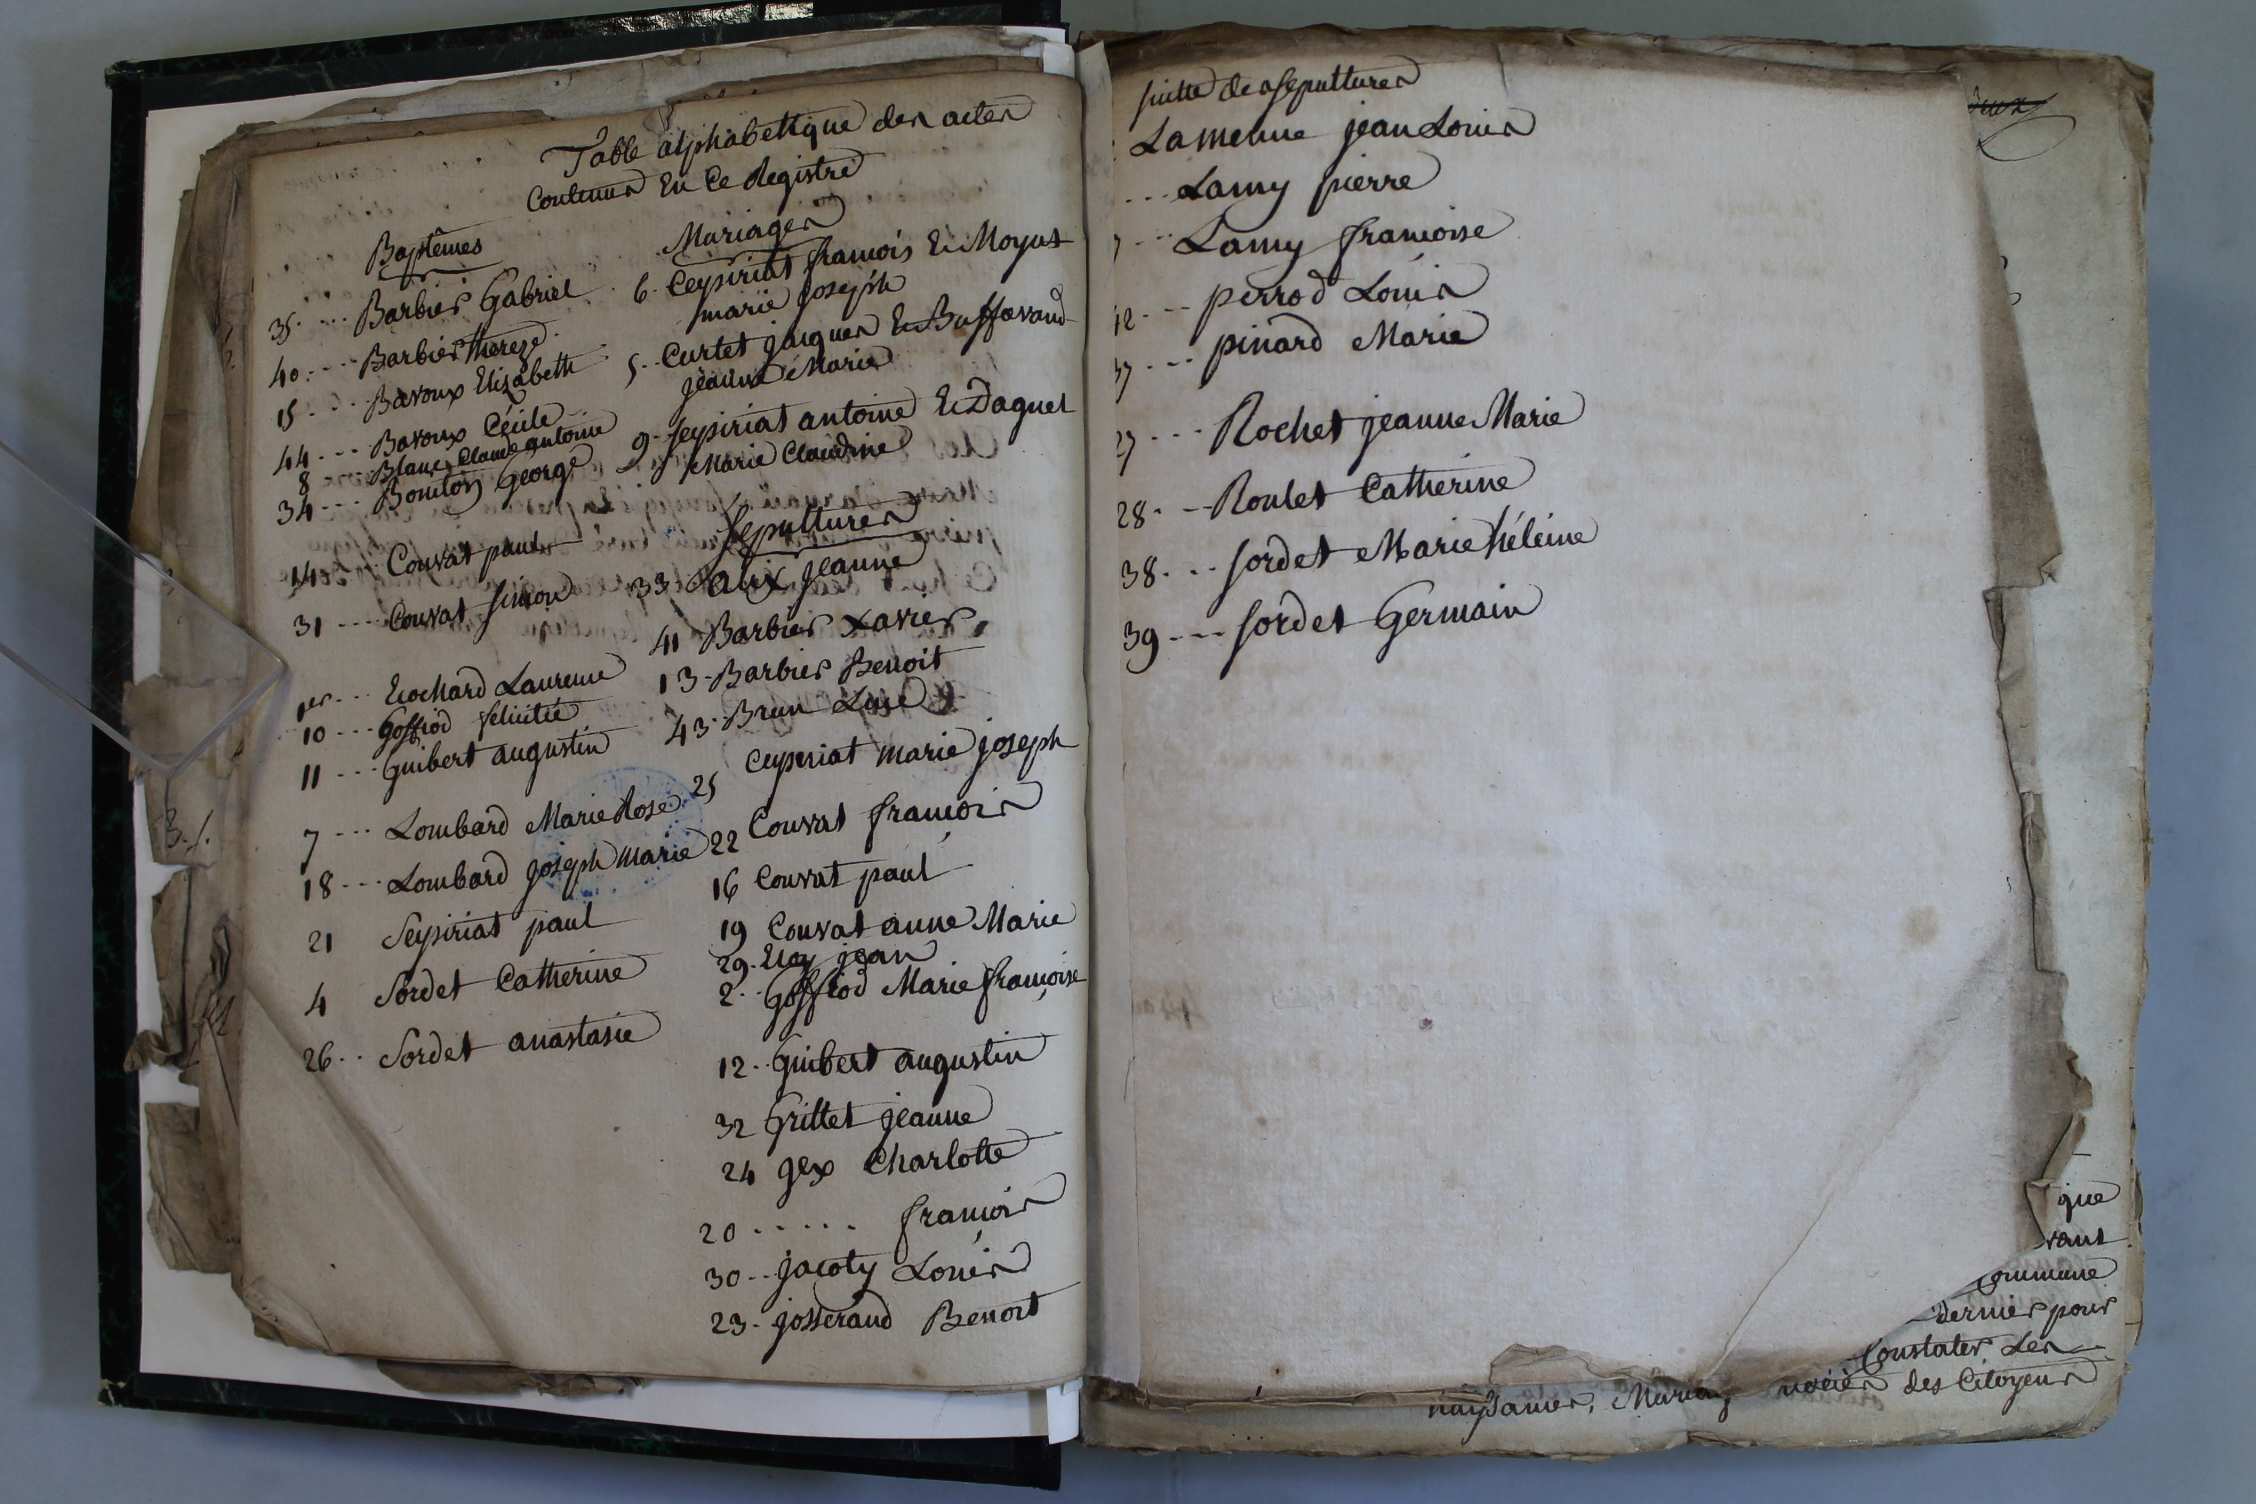 Table alphabettique des actes
Contenus En Ce Registre
Baptêmes
35 .... Barbier Gabriel
40 .... Barbier thereze
15 .... Bavoux Elizabeth
44 .... Bavoux Cécile
8 Blanc Claude antoine
34 .... Bouiton George
14 .... Couvat paul
31 .... Couvat simon
1er ... Ecochard Laurence
10 ... Goffiod felicité
11 ... Guibert augustin
7 ... Lombard Marie Rose
18 ... Lombard joseph marie
21 Seysiriat paul
4 Sordet Catherine
26 .. Sordet anastasie
Mariages
6. Ceysiriat francois Et Moyat
marie joseph
5.. Curtet jacques Et Buffavand
jeanne Marie
9. seysiriat antoine Et Daguet
Marie Claudine
sepultures
33 aux jeanne
41 Barbier Xavier
13 - Barbier Benoit
43 Brun Luce
25 Ceyseriat marie joseph
22 Couvat francois
16 Couvat paul
19 Couvat anne Marie
29. Eloy jean
2.. Goffiod Marie francoise
12.. Guibert augustin
32 Grillet jeanne
24 gex Charlotte
20 ..... francois
30 .. jacoty Louis
23 . josserand Benoit
suitte de sepultures
Lameune jean Louis
... Lamy pierre
... Lamy francoise
... perrod Louis
37 ... pinard Marie
27 ... Rochet jeanne Marie
28 .. Roulet Catherine
38 ... sordet Marie héléine
39 ... sordet Germain
que
vant
Commune
dernier pour
Constater Les
des Citoyens